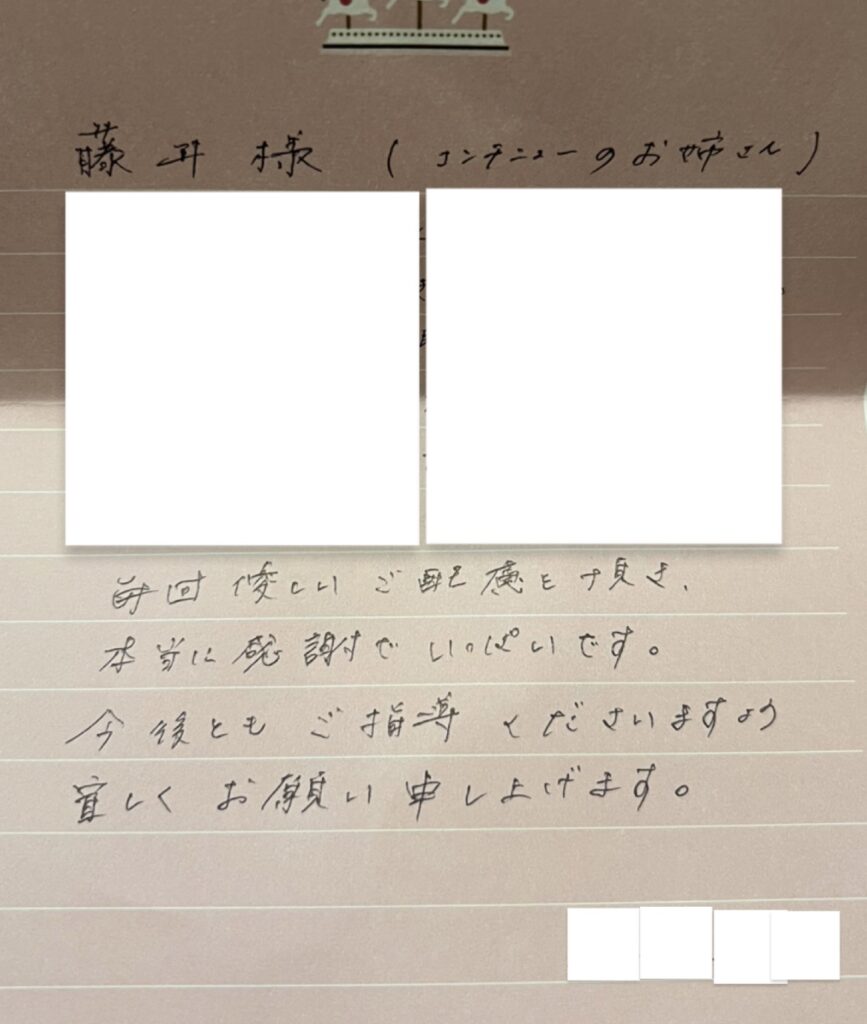 藤井様(コンテニューのお姉さん)
毎回優しいご配慮を頂き、
本当に感謝でいっぱいです。
今後ともご指導くださいますよう
宜しくお願い申し上げます。